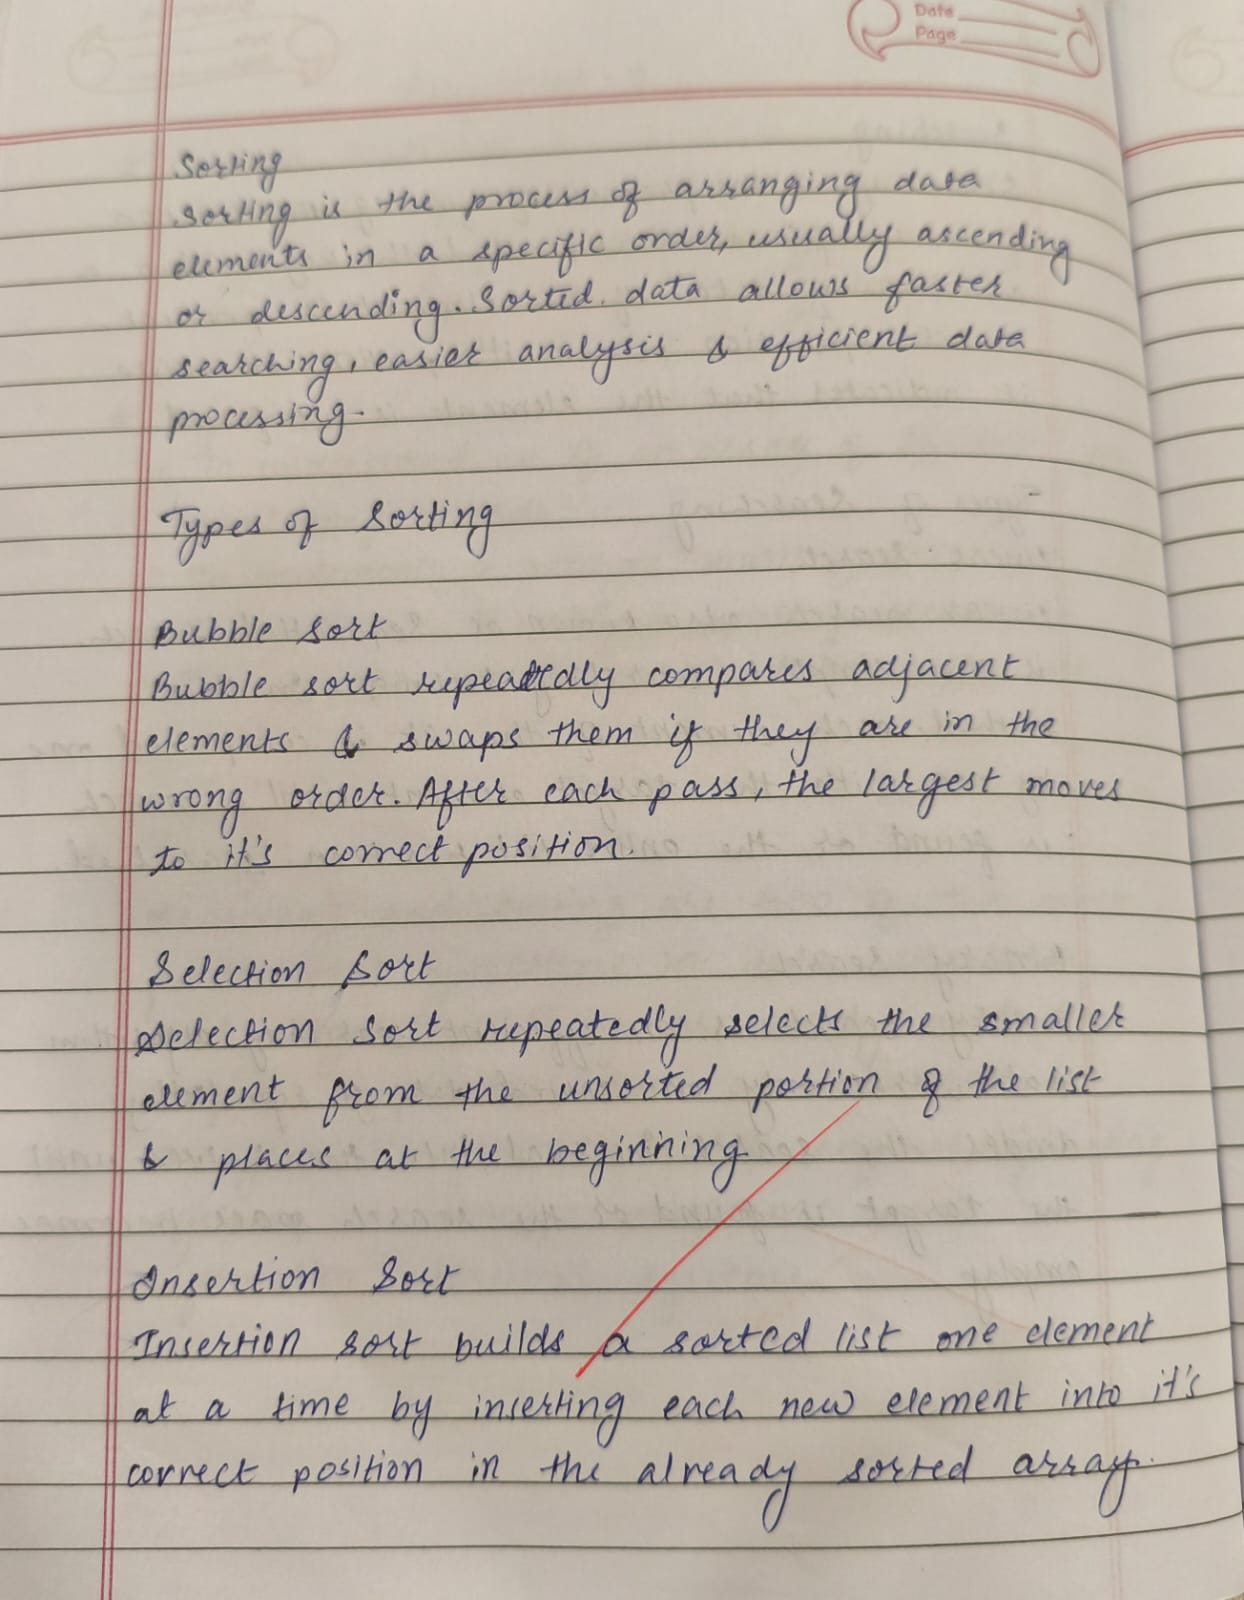 Date
Page
Sorting
Sorting is the process of arranging data
elements in a specific order, usually ascending
or descending. Sorted data allows faster
searching, easier analysis & efficient data
processing.
Types of Sorting
Bubble sort
Bubble sort repeatedly compares adjacent
elements & swaps them if they are in the
wrong order. After each pass, the largest moves
to it's correct position.
Selection Sort
Selection Sort repeatedly selects the smaller
element from the unsorted portion of the list
& places at the beginning
Insertion Sort
Insertion sort builds a sorted list one element
at a time by inserting each new element into it's
correct position in the already sorted array.